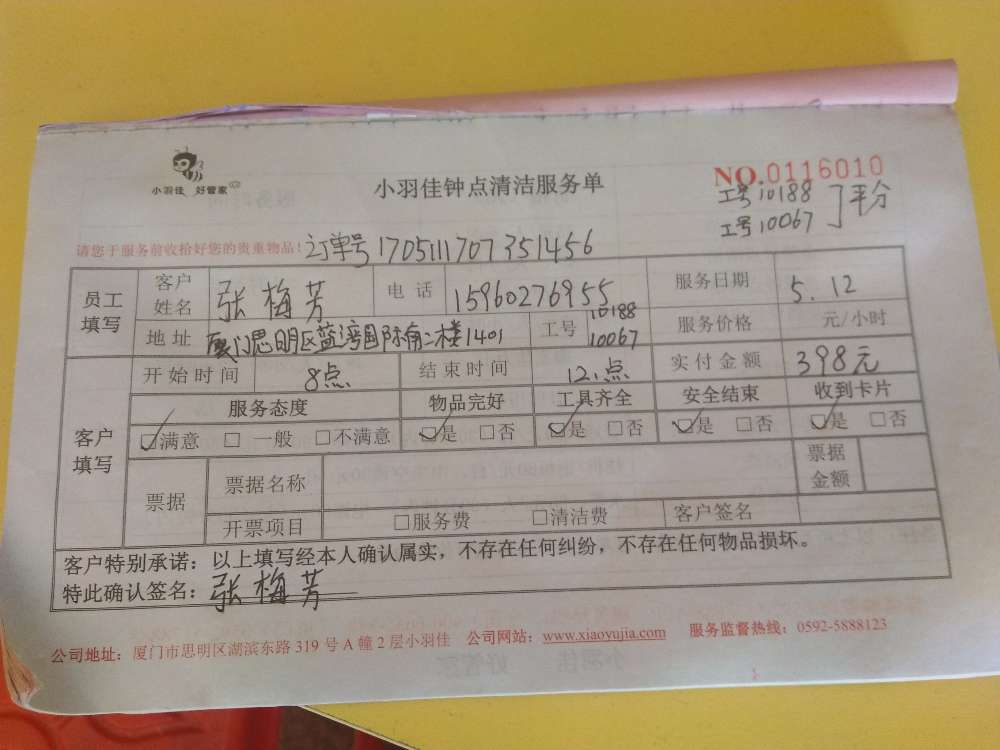 小羽佳 好管家
小羽佳钟点清洁服务单
NO.0116010
工号10188
工号10067 】平分
请您于服务前收拾好您的贵重物品! 订单号1705111707351456
员工填写 客户姓名 张梅芳 电话 15960276955 服务日期 5.12
地址 厦门思明区蓝湾国际南二楼1401 工号 10188 10067 服务价格 元/小时
开始时间 8点 结束时间 12.点 实付金额 398元
客户填写 服务态度 物品完好 工具齐全 安全结束 收到卡片
☑满意 □一般 □不满意 ☑是 □否 ☑是 □否 ☑是 □否 ☑是 □否
票据 票据名称 票据金额
开票项目 □服务费 □清洁费 客户签名
客户特别承诺：以上填写经本人确认属实，不存在任何纠纷，不存在任何物品损坏。
特此确认签名：张梅芳
公司地址：厦门市思明区湖滨东路 319 号 A 幢 2 层小羽佳 公司网站：www.xiaoyujia.com 服务监督热线：0592-5888123